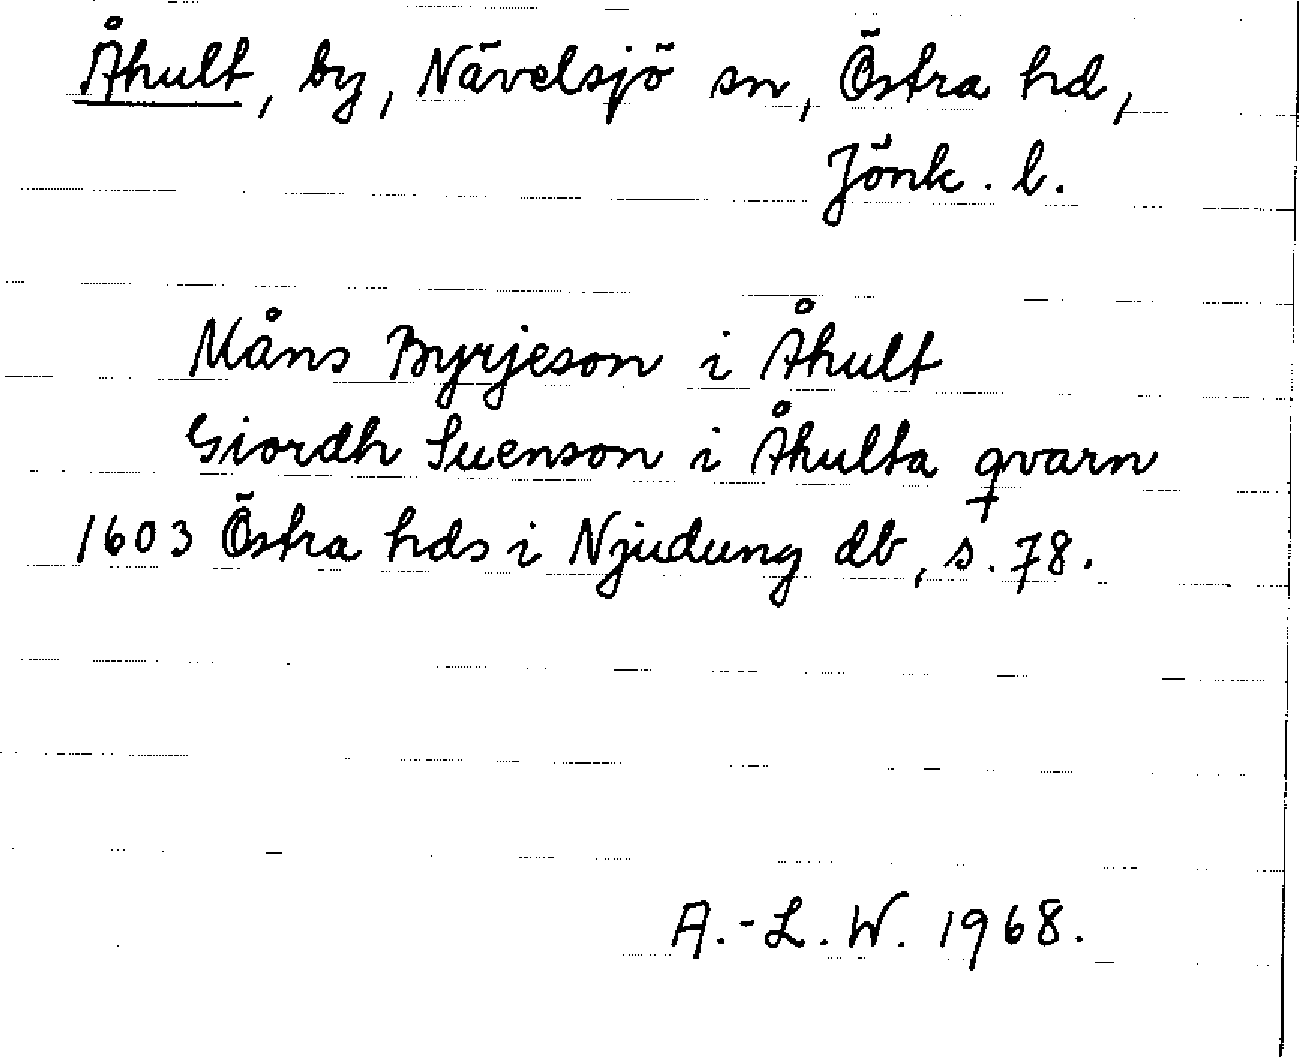 Åhult, by, Nävelsjö sn, Östra hd,
Jönk. l.
Måns Byrjeson i Åhult
Giordh Suenson i Åhulta qvarn
1603 Östra hds i Njudung db, s. 78.
A.-L. W. 1968.